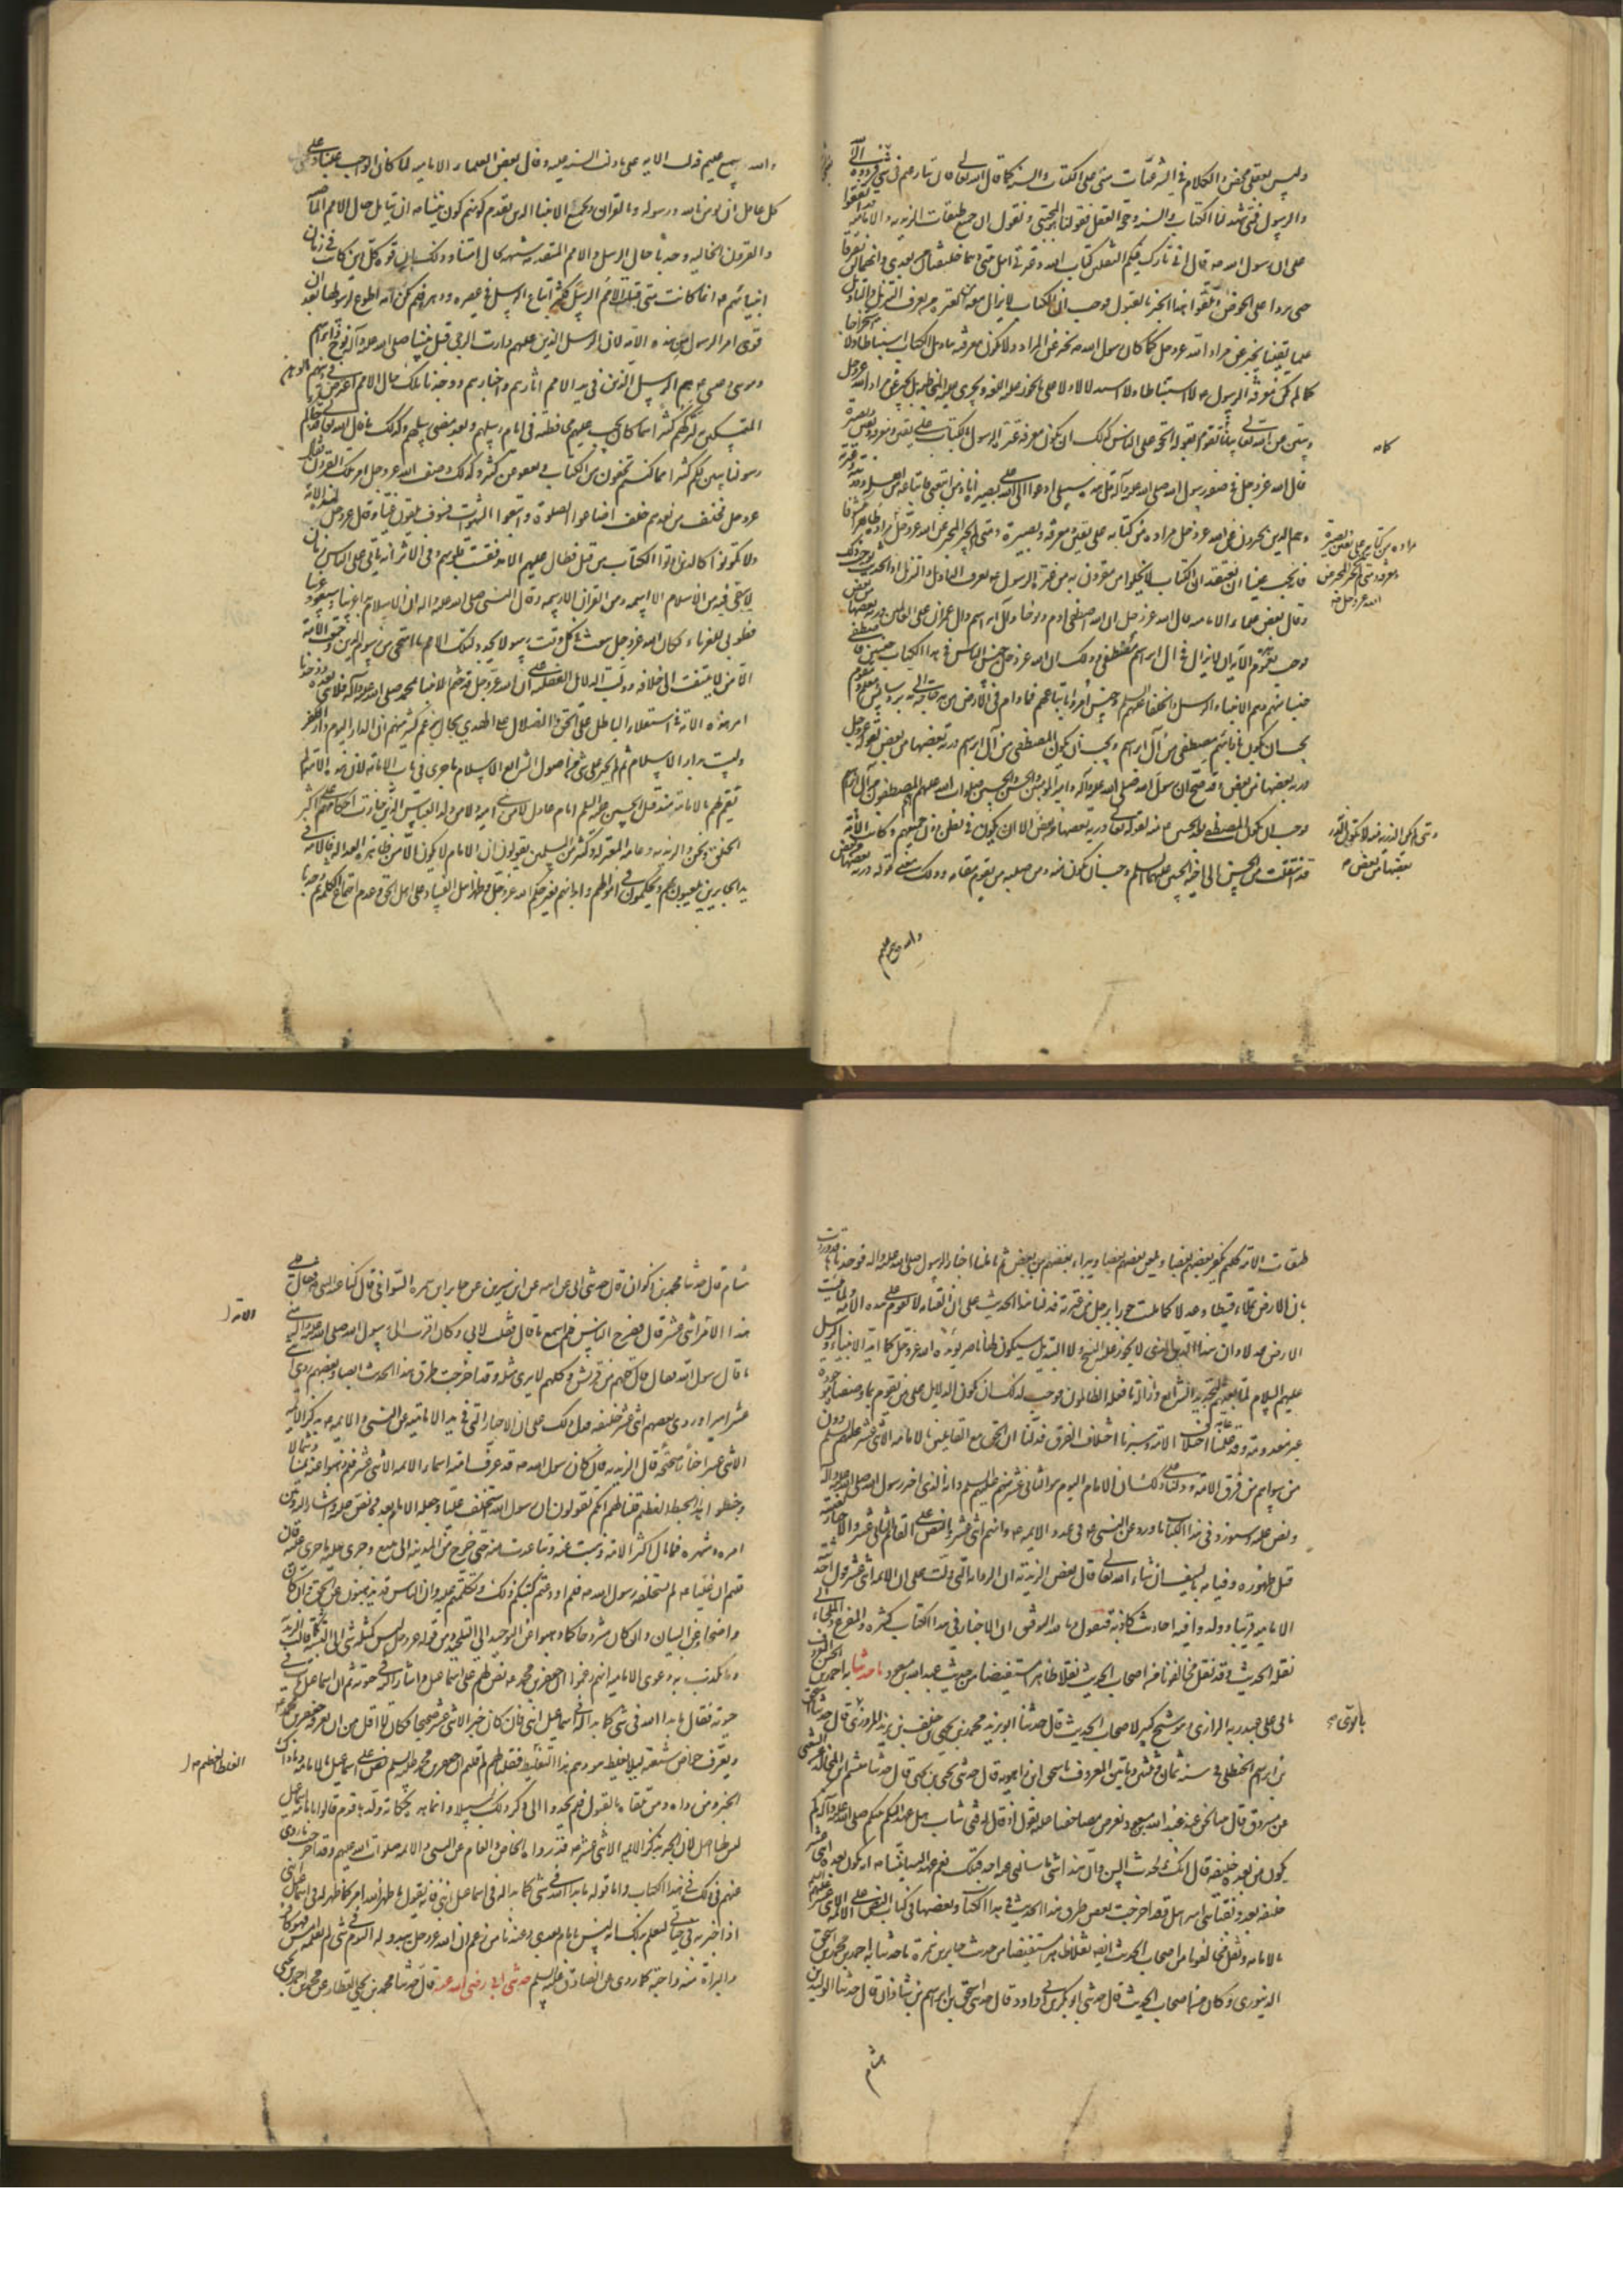 وليس يعقل محض والكلام في الشرعيات مبني على الكتاب والسنة كما قال الله تعالى فان تنازعتم في شيء فردوه الى الله
والرسول فمتى شهد لنا الكتاب والسنة وحجة العقل فقولنا المجتبى ونقول ان جميع طبقات الزيدية والامامية قد اتفقوا
على ان رسول الله ص قال اني تارك فيكم الثقلين كتاب الله وعترتي اهل بيتي وهما الخليفتان من بعدي وانهما لن يفترقا
حتى يردا على الحوض وتلقوا هذا الخبر بالقبول فوجب ان الكتاب لا يزال معه من العترة من يعرف التنزيل والتاويل
علما يقينا يخبر عن مراد الله عز وجل كما كان رسول الله ص يخبر عن المراد ولا يكون معرفته بتاويل الكتاب استنباطا ولا استخراجا
كما لم تكن معرفة الرسول ص لا استنباطا ولا استدلالا ولا على ما تجوز عليه اللغة ويجري عليه المخاطبة بل يخبر عن مراد الله عز وجل
ويبين عن الله تعالى بيانا تقوم بقوله الحجة على الناس كذلك ان يكون معرفة عترة الرسول بالكتاب على يقين ومعرفة وبصيرة
قال الله عز وجل في صفة رسول الله صلى الله عليه وآله قل هذه سبيلي ادعوا الى الله على بصيرة انا ومن اتبعني فاتباعه من اهله وذريته وعترته
هم الذين يخبرون عن الله عز وجل مراده من كتابه على يقين ومعرفة وبصيرة ومتى لم يكن المخبر عن الله عز وجل مراده ظاهرا مكشوفا
فانه يجب علينا ان نعتقد ان الكتاب لا يخلوا من مقرون به من عترة الرسول ص يعرف التاويل والتنزيل اذ الحديث يوجب ذلك
وقال بعض علماء الامامية قال الله عز وجل ان الله اصطفى ادم ونوحا وآل ابراهيم وآل عمران على العالمين ذرية بعضها من بعض
فوجب بعموم الآية ان لا يزال في آل ابراهيم مصطفى وذلك ان الله عز وجل جنس الناس في هذا الكتاب جنسين فاصطفى
جنسا منهم وهم الانبياء والرسل والخلفاء عليهم السلم وجنس امروا باتباعهم فما دام في الارض من به حاجة الى مدبر وسائس ومعلم ومقوم
يجب ان يكون بازائهم مصطفى من آل ابراهيم ويجب ان يكون المصطفى من آل ابراهيم ذرية بعضها من بعض لقوله عز وجل
ذرية بعضها من بعض وقد صح ان رسول الله صلى الله عليه وآله وامير المؤمنين والحسن والحسين صلوات الله عليهم المصطفون من آل ابراهيم
فوجب ان يكون المصطفى بعد الحسين ع منه لقوله تعالى ذرية بعضها من بعض الا ان يكون في بطن دون جميعهم وكانت الامامة
قد انتقلت من الحسن الى اخيه الحسين عليهما السلم وجب ان يكون منه ومن صلبه من يقوم مقامه وذلك معنى قوله ذرية بعضها من بعض
والله سميع عليم
والله سميع عليم فدلت الاية على ما دلت السنة عليه وقال بعض العلماء الامامية لما كان الواجب علينا وعلى
كل عاقل ان يؤمن بالله ورسوله وبالقران وبجميع الانبياء الذين تقدم كونهم كون نبينا ص ان يتامل حال الامم الماضية
والقرون الخالية وجدنا حال الرسل والامم المتقدمة شبيهة بحال امتنا وذلك ان قوة كل دين كانت في زمان
انبيائهم ع انما كانت متى قبلت الامم الرسل فكثر اتباع الرسل في عصره ودهره فلم تكن امة اطوع لرسولها بعد ان
قوي امر الرسول من هذه الامة لان الرسل الذين عليهم دارت الرحى قبل نبينا صلى الله عليه وآله نوح وابراهيم
وموسى وعيسى ع هم الرسل الذين في يد الامم آثارهم واخبارهم ووجدنا تلك حال الامم اعترض في دينهم الوهن
المتمسكين به لتركهم كثيرا مما كان يجب عليهم محافظته في ايام رسلهم وبعد مضي رسلهم وكذلك ما قال الله تعالى قد جاءكم
رسولنا يبين لكم كثيرا مما كنتم تخفون من الكتاب ويعفو عن كثير وكذلك وصف الله عز وجل امر تلك القرون فقال
عز وجل فخلف من بعدهم خلف اضاعوا الصلوة واتبعوا الشهوات فسوف يلقون غيا وقال عز وجل لهذه الامة
ولا تكونوا كالذين اوتوا الكتاب من قبل فطال عليهم الامد فقست قلوبهم وفي الاثر انه ياتي على الناس زمان
لا يبقى فيه من الاسلام الا اسمه ومن القران الا رسمه وقال النبي صلى الله عليه واله ان الاسلام بدا غريبا وسيعود غريبا
فطوبى للغرباء فكان الله عز وجل يبعث في كل وقت رسولا يجدد لتلك الامم ما انمحى من رسوم الدين واجتمعت الامة
الا من لا يلتفت الى خلافه ودلت الدلائل العقلية على ان الله عز وجل قد ختم الانبياء بمحمد صلى الله عليه وآله فلا نبي بعده ووجدنا
امر هذه الامة في استعلاء الباطل على الحق والضلال على الهدى بحال زعم كثير منهم ان الدار اليوم دار الكفر
وليست بدار الاسلام ثم لم يجر على شيء من اصول الشرايع الاسلام ما جرى في باب الامامة لان هذه الامة لم
يقم لهم بالامامة منذ قتل الحسين عليه السلم امام عادل لا من بني امية ولا من ولد العباس الذين جارت احكامهم على اكثر
الخلق ونحن والزيدية وعامة المعتزلة وكثير من المسلمين يقولون ان الامام لا يكون الا من ظاهره العدالة فالامة في
يد الجايرين يلعبون بهم ويحكمون في اموالهم وابدانهم بغير حكم الله عز وجل وظهر اهل الفساد على اهل الحق وعدم اجتماع الكلمة ثم وجدنا
كانه
مراده من كتابه على يقين وبصيرة
ومعرفة ومتى لم يكن المخبر عن
الله عز وجل
ومتى لم يكن الذرية منه لا يكون الذرية
بعضها من بعض ص
طبقات الامة كلهم يكفر بعضهم بعضا ويلعن بعضهم بعضا ويبرء بعضهم من بعض ثم تاملنا اخبار الرسول صلى الله عليه واله فوجدناها قد وردت
بان الارض تملاء قسطا وعدلا كما ملئت جورا برجل من عترته فدلنا هذا الحديث على ان القيامة لا تقوم على هذه الامة الا بعد ما ملئت
الارض عدلا وان هذا الدين الذي لا يجوز عليه النسخ ولا التبديل سيكون له ناصر يؤيده الله عز وجل كما ايد الانبياء والرسل
عليهم السلام لما بعثهم لتجديد الشرايع وازالة ما فعله الظالمون فوجب لذلك ان يكون الدلايل على من يقوم بما وصفنا موجودة
غير معدومة وقد علمنا عامة اختلاف الامة وسبرنا احوال الفرق فدلنا ان الحق مع القائلين بالامامة الاثني عشر عليهم السلم دون
من سواهم من فرق الامة ودلنا ذلك على ان الامام اليوم هو الثاني عشر منهم عليهم السلم وانه الذي اخبر رسول الله صلى الله عليه وآله
ونص عليه وسنورد في هذا الكتاب ما ورد عن النبي ص في عدد الايمة ع وانهم اثنى عشر والنص على القائم الثاني عشر والاخبار بغيبته
قبل ظهوره وقيامه بالسيف ان شاء الله تعالى قال بعض الزيدية ان الرواية التي دلت على ان الايمة اثنى عشر قول احدثه
الامامية قريبا وولدوا فيه احاديث كاذبة فنقول وبالله التوفيق ان الاخبار في هذا الكتاب كثيرة والمفزع والملجاء الى
نقلة الحديث وقد نقل مخالفونا من اصحاب الحديث نقلا ظاهرا مستفيضا من حديث عبد الله بن مسعود ما حدثنا به احمد بن الحسن القطان
بابي علي عبد ربه الرازي وهو شيخ كبير لاصحاب الحديث قال حدثنا ابو يزيد محمد بن يحيى بن خلف بن يزيد المروزي قال حدثنا اسحق
بن ابراهيم الحنظلي في سنة ثمان وثلثين ومايتين المعروف باسحق ابن راهويه قال حدثني يحيى بن يحيى قال حدثنا هشيم عن مجالد عن الشعبي
عن مسروق قال بينا نحن عند عبد الله بن مسعود نعرض مصاحفنا عليه يقول اذ قال له فتى شاب هل عهد اليكم نبيكم صلى الله عليه وآله كم
يكون من بعده خليفة قال انك لحدث السن وان هذا شيء ما سالني عنه احد قبلك نعم عهد الينا نبينا ص انه يكون بعده اثنى عشر
خليفة بعدد نقباء بني اسرائيل وقد اخرجت بعض طرق هذا الحديث في هذا الكتاب وبعضها في كتاب النص على الائمة الاثني عشر عليهم السلم
بالامامة ونقل مخالفونا من اصحاب الحديث ايضا نقلا ظاهرا مستفيضا من حديث جابر بن سمرة ما حدثنا به احمد بن محمد بن اسحق
الدينوري وكان من اصحاب الحديث قال حدثني ابو بكر بن ابي داود قال حدثني اسحق بن ابراهيم بن شاذان قال حدثنا الوليد بن
هشام
بالوي ص
هشام قال حدثنا محمد بن ذكوان قال حدثني ابي عن ابيه عن ابن سيرين عن جابر بن سمرة السوائي قال كنا عند النبي ص فقال يلي
هذا الامر اثنى عشر قال فصرخ الناس فلم اسمع ما قال فقلت لابي وكان اقرب الى رسول الله صلى الله عليه وآله مني
ما قال رسول الله فقال قال كلهم من قريش وكلهم لا يرى مثله وقد اخرجت طرق هذا الحديث ايضا وبعضهم روى اثنى
عشر اميرا وروى بعضهم اثنى عشر خليفة فدل ذلك على ان الاخبار التي في يد الامامية عن النبي والايمة ع بذكر الايمة
الاثني عشر اخبار صحيحة قال الزيدية فان كان رسول الله ص قد عرف امته اسماء الايمة الاثني عشر فلم ذهبوا عنه يمينا وشمالا
وخبطوا هذا الخبط العظيم فقلنا لهم انكم تقولون ان رسول الله ص استخلف عليا وجعله الامام بعده ونص عليه واشار اليه وبين
امره وشهره فما بال اكثر الامة ذهبت عنه وتباعدت منه حتى خرج من المدينة الى ينبع وجرى عليه ما جرى فان
قلتم ان عليا ع لم يستخلفه رسول الله ص فلم اودعتم كتبكم ذلك وتكلمتم عليه وان الناس قد يذهبون عن الحق وان كان
واضحا وعن البيان وان كان مشروحا كما ذهبوا عن التوحيد الى التلحيد ومن قوله عز وجل ليس كمثله شيء الى التشبيه قالت الزيدية
ومما تكذب به دعوى الامامية انهم زعموا ان جعفر بن محمد ع نص لهم على اسماعيل واشار اليه في حيوته ثم ان اسماعيل مات في
حيوته فقال ما بدا لله في شيء كما بدا له في اسماعيل ابني فان كان خبر الاثني عشر صحيحا فكان لا اقل من ان يعرفه جعفر بن محمد ع
ويعرف خواص شيعته ليلا يغلط هو وهم هذا الغلط فقلنا لهم بم قلتم ان جعفر بن محمد عليه السلم نص على اسماعيل بالامامة وما ذاك
الخبر ومن رواه ومن تلقاه بالقبول فلم يجدوا الى ذكر ذلك سبيلا وانما هذه حكاية ولدها قوم قالوا بامامة اسماعيل
ليس لها اصل لان الخبر بذكر الايمة الاثني عشر ع قد رواه الخاص والعام عن النبي والايمة صلوات الله عليهم وقد اخرجت ما روي
عنهم في ذلك في هذا الكتاب واما قوله ما بدا لله في شيء كما بدا له في اسماعيل ابني فانه يقول ما ظهر لله امر كما ظهر له في اسماعيل ابني
اذ اخترمه في حياتي ليعلم بذلك انه ليس بامام بعدي وعندنا من زعم ان الله عز وجل يبدو له اليوم في شيء لم يعلمه امس فهو كافر
والبراءة منه واجبة كما روي عن الصادق عليه السلم حدثني ابي رضي الله عنه قال حدثنا محمد بن يحيى العطار عن محمد بن احمد بن يحيى
الامة
الغلط العظيم ص